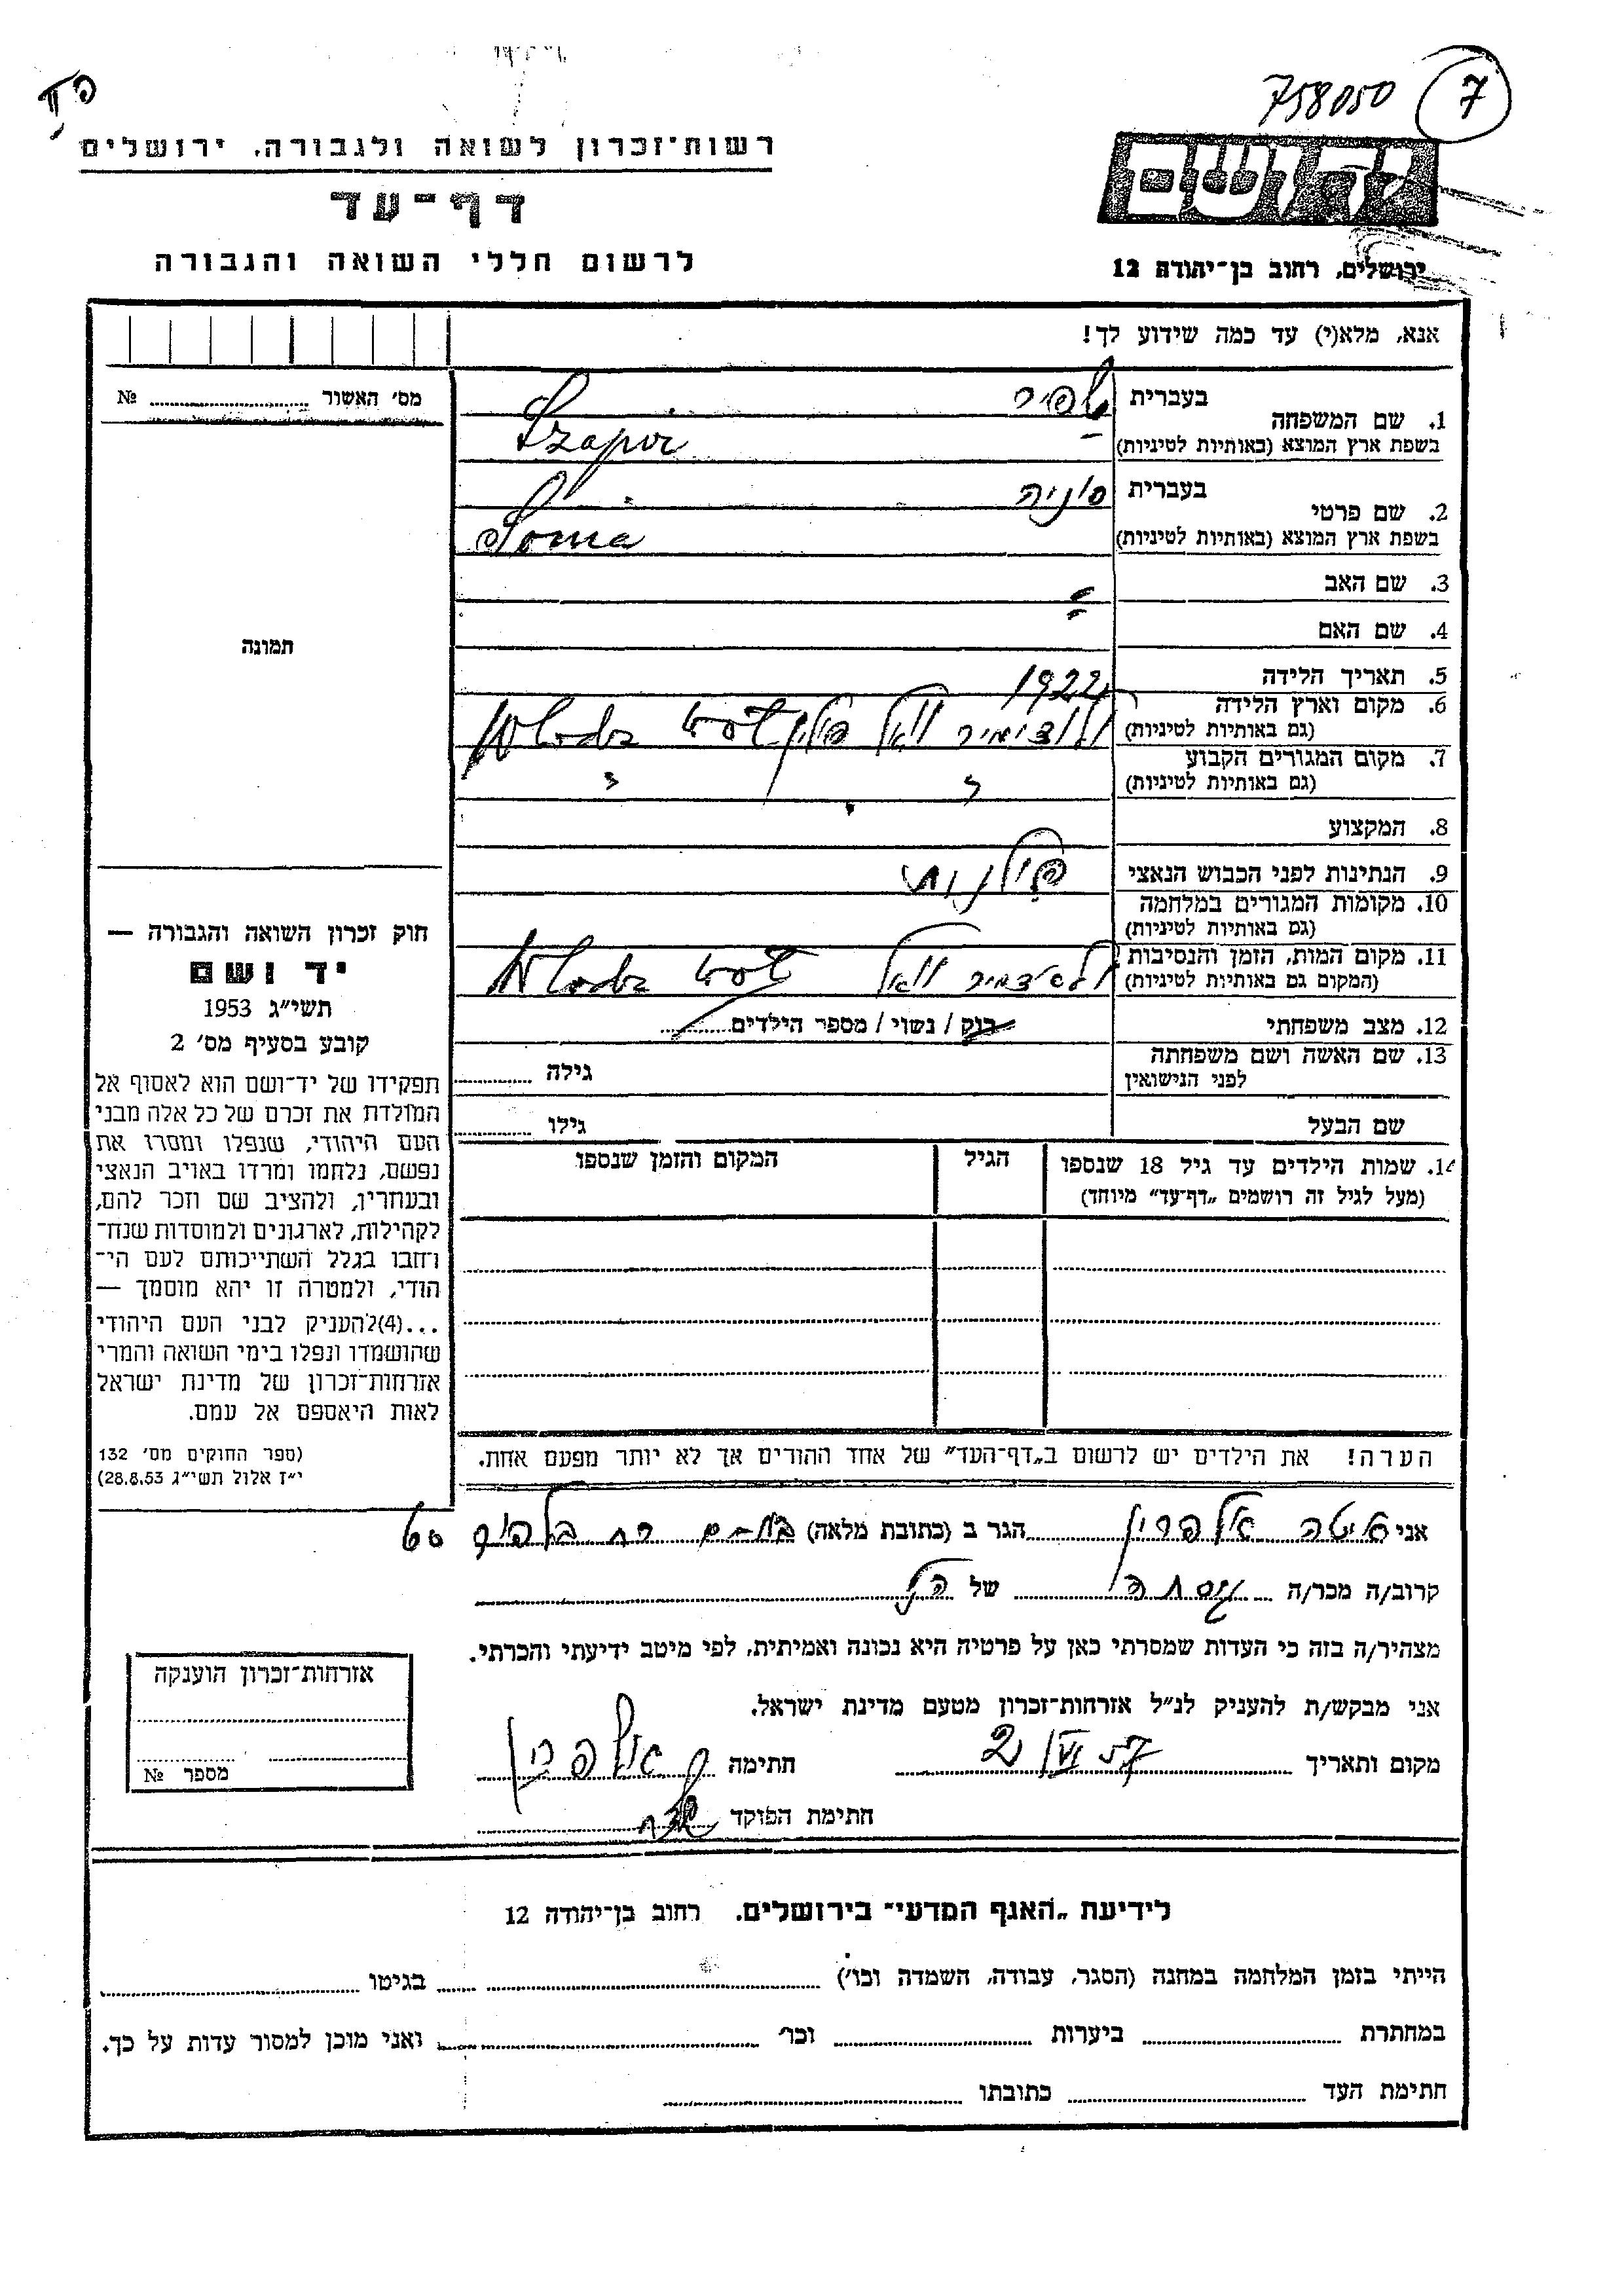 758050 7
פח
רשות־זכרון לשואה ולגבורה, ירושלים
דף־עד
לרשום חללי השואה והגבורה
יד ושם
ירושלים, רחוב בן־יהודה 12
אנא, מלא(י) עד כמה שידוע לך!
מס׳ האשור № 
תמונה
1. שם המשפחה
בעברית שפיר
בשפת ארץ המוצא (באותיות לטיניות) Szapir
2. שם פרטי
בעברית סוניה
בשפת ארץ המוצא (באותיות לטיניות) Sonia
3. שם האב
4. שם האם
5. תאריך הלידה 1922
6. מקום וארץ הלידה
(גם באותיות לטיניות) ולודימיר וואל פולין
7. מקום המגורים הקבוע
(גם באותיות לטיניות) " "
8. המקצוע
9. הנתינות לפני הכבוש הנאצי פולנית
10. מקומות המגורים במלחמה
(גם באותיות לטיניות)
11. מקום המות, הזמן והנסיבות
(המקום גם באותיות לטיניות) וואל
12. מצב משפחתי רוק / נשוי / מספר הילדים
13. שם האשה ושם משפחתה
לפני הנישואין גילה
שם הבעל גילו
14. שמות הילדים עד גיל 18 שנספו הגיל המקום והזמן שנספו
(מעל לגיל זה רושמים „דף־עד״ מיוחד)
הערה! את הילדים יש לרשום ב„דף־העד״ של אחד ההורים אך לא יותר מפעם אחת.
חוק זכרון השואה והגבורה —
יד ושם
תשי״ג 1953
קובע בסעיף מס׳ 2
תפקידו של יד־ושם הוא לאסוף אל
המולדת את זכרם של כל אלה מבני
העם היהודי, שנפלו ומסרו את
נפשם, נלחמו ומרדו באויב הנאצי
ובעוזריו, ולהציב שם וזכר להם,
לקהילות, לארגונים ולמוסדות שנח־
רחבו בגלל השתייכותם לעם הי־
הודי, ולמטרה זו יהא מוסמך —
...(4)להעניק לבני העם היהודי
שהושמדו ונפלו בימי השואה והמרי
אזרחות־זכרון של מדינת ישראל
לאות היאספם אל עמם.
(ספר החוקים מס׳ 132
י״ז אלול תשי״ג 28.8.53)
אני איטה אלפרין הגר ב (כתובת מלאה) בת־ים רח בלפור 60
קרוב/ה מכר/ה של הנ״ל
מצהיר/ה בזה כי העדות שמסרתי כאן על פרטיה היא נכונה ואמיתית, לפי מיטב ידיעתי והכרתי.
אני מבקש/ת להעניק לנ״ל אזרחות־זכרון מטעם מדינת ישראל.
מקום ותאריך 2 VI 57 חתימה אלפרין
חתימת הפוקד
אזרחות־זכרון הוענקה
מספר №
לידיעת „האגף המדעי״ בירושלים, רחוב בן־יהודה 12
הייתי בזמן המלחמה במחנה (הסגר, עבודה, השמדה וכו׳) בגיטו
במחתרת ביערות וכו׳ ואני מוכן למסור עדות על כך.
חתימת העד כתובתו